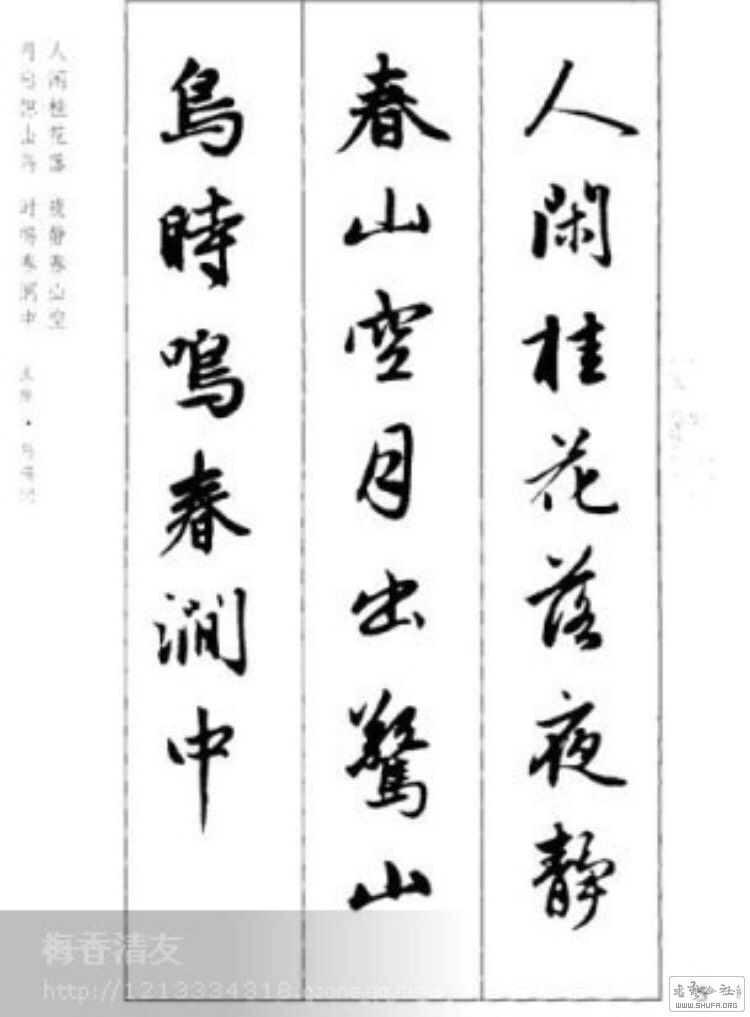 人閑桂花落夜静
春山空月出驚山
鳥時鳴春澗中
人闲桂花落 夜静春山空
月出惊山鸟 时鸣春涧中 王维·鸟鸣涧
梅香清友
http://1213334318.qzone.qq.com
WWW.SHUFA.ORG